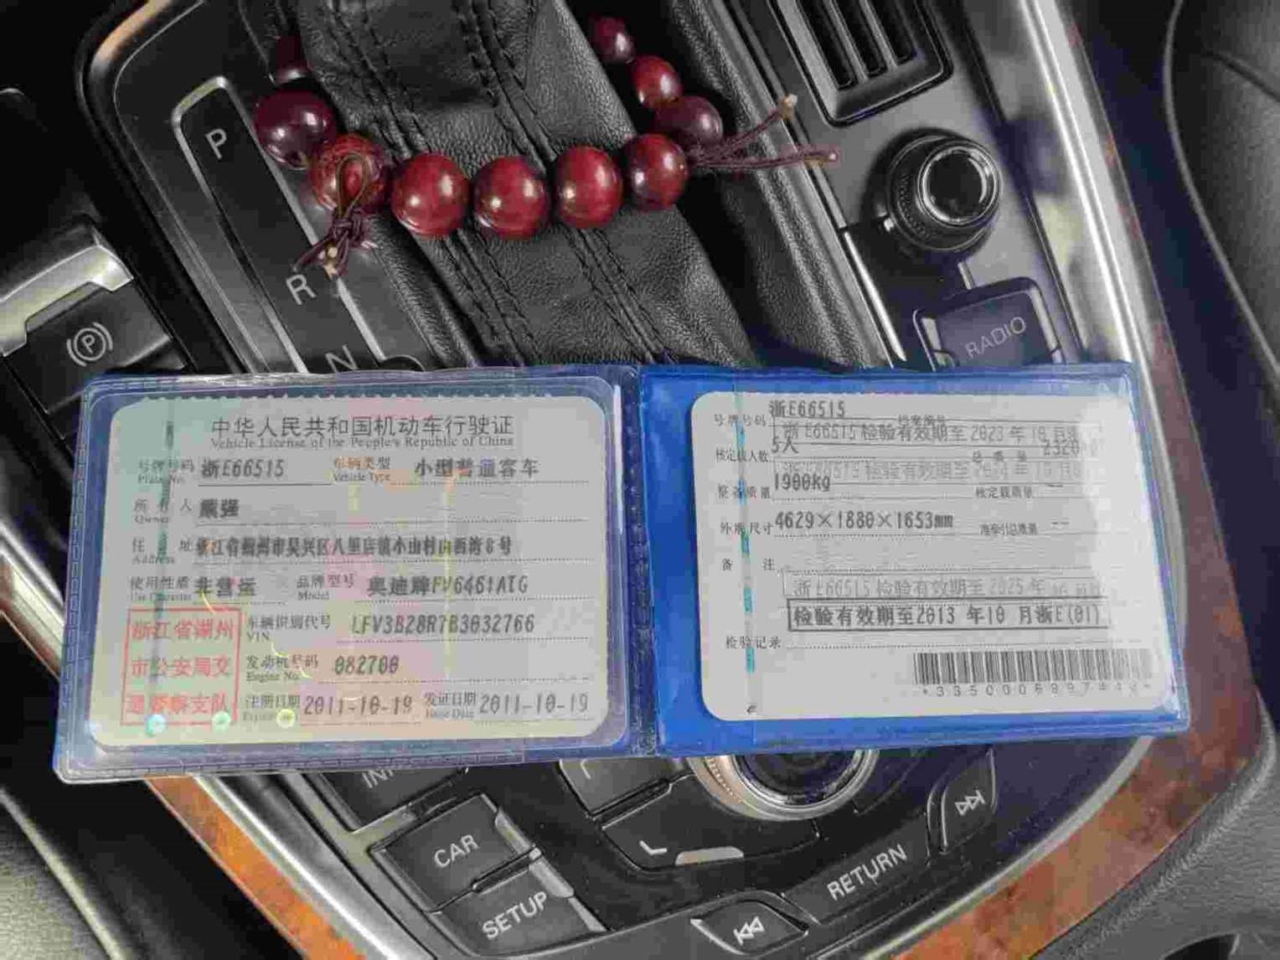 P
R
N
RADIO
中华人民共和国机动车行驶证
Vehicle License of the People's Republic of China
号牌号码 浙E66515 车辆类型 小型普通客车
Plate No. Vehicle Type
所有人 熊强
Owner
住址 浙江省湖州市吴兴区八里店镇小山村山西湾8号
Address
使用性质 非营运 品牌型号 奥迪牌FV6461ATG
Use Character Model
车辆识别代号 LFV3B28R7B3032766
VIN
发动机号码 082700
Engine No.
注册日期 2011-10-19 发证日期 2011-10-19
Issue Date
浙江省湖州
市公安局交
通警察支队
号牌号码 浙E66515 档案编号
浙E66515 检验有效期至 2023 年 10 月
核定载人数 5人 总质量 2320
整备质量 1900kg 核定载质量 --
外廓尺寸 4629×1880×1653mm 准牵引总质量 --
备注
浙E66515 检验有效期至 2025 年
检验有效期至2013 年10 月浙E(01)
检验记录
CAR
SETUP
RETURN